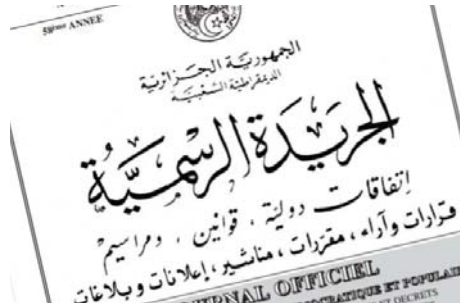 58ème ANNEE
الجمهورية الجزائرية
الديمقراطية الشعبية
الجريدة الرسمية
إتفاقات دولية ، قوانين ، ومراسيم
قرارات وآراء ، مقررات ، مناشير ، إعلانات وبلاغات
OFFICIEL
ET POPULAIRE